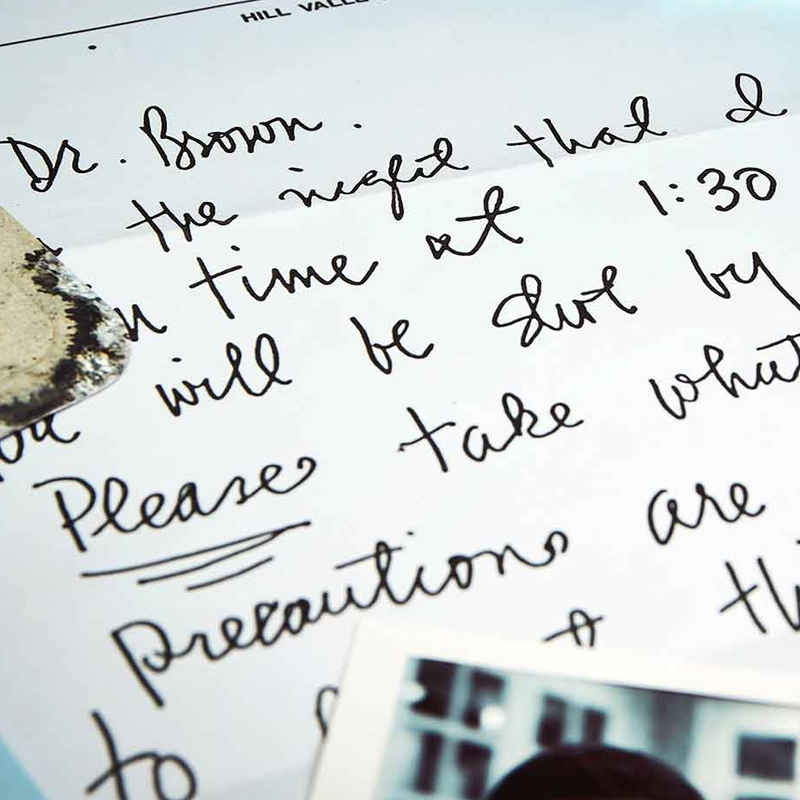 HILL VALLE
Dr. Brown.
the night that I
n time at 1:30
will be shot by
Please take what
precautions are
to